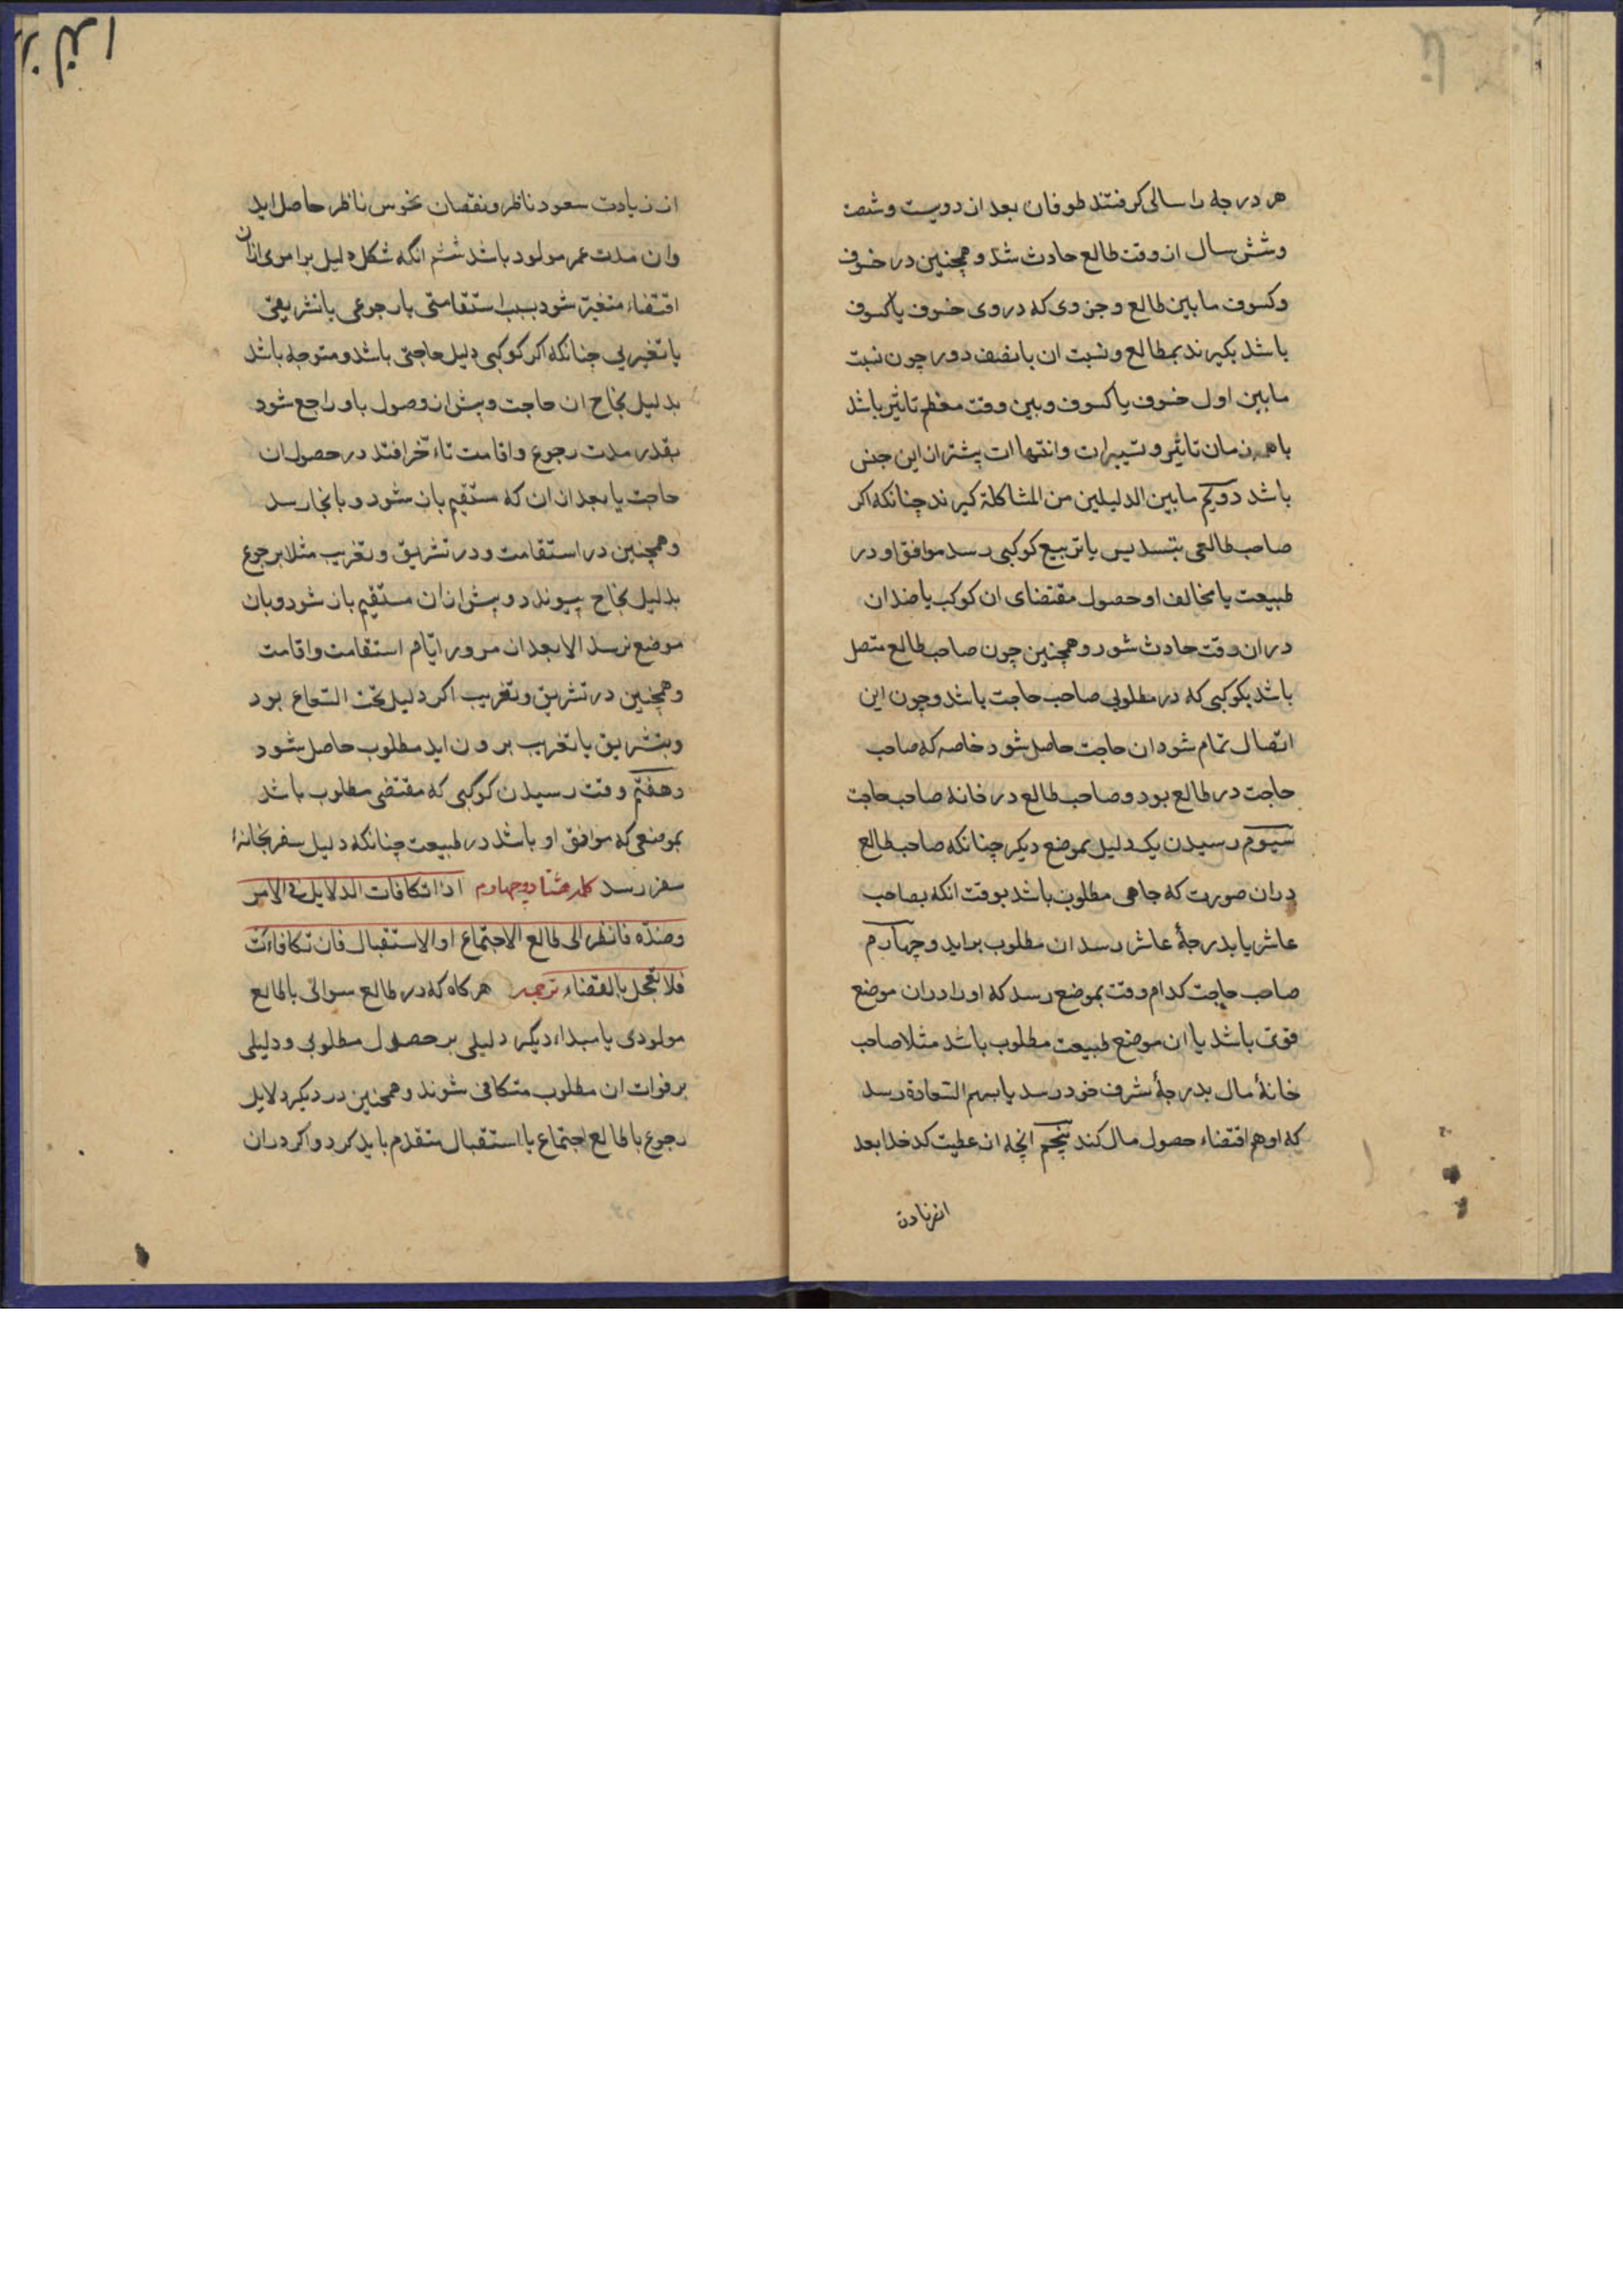 هر درجه را سالی کرفتند طوفان بعد از دویست و شصت
و شش سال از وقت طالع حادث شد و همچنین در خسوف
و کسوف ما بین طالع و جزوی که در وی خسوف یا کسوف
باشد بکیرند بمطالع و نسبت ان با نصف دور چون نسبت
ما بین اول خسوف یا کسوف و بین وقت معظم تاثیر باشد
با همه زمان تاثیر و تسییرات و انتهاات بیشتر از این جنس
باشد دویم ما بین الدلیلین من المشاکلة کیرند چنانکه اکر
صاحب طالعی بتسدیس یا تربیع کوکبی رسد موافق او در
طبیعت یا مخالف او حصول مقتضای ان کوکب یا ضد ان
در ان وقت حادث شود و همچنین چون صاحب طالع متصل
باشد بکوکبی که در مطلوبی صاحب حاجت باشد و چون این
اتصال تمام شود ان حاجت حاصل شود خاصه که صاحب
حاجت در طالع بود و صاحب طالع در خانه صاحب حاجت
سیوم رسیدن یک دلیل بموضع دیکر چنانکه صاحب طالع
در ان صورت که جاهی مطلوب باشد بوقت انکه بصاحب
عاشر یا بدرجهٔ عاشر رسد ان مطلوب براید و چهارم
صاحب حاجت کدام وقت بموضع رسد که او را در ان موضع
قوتی باشد یا ان موضع طبیعت مطلوب باشد مثلا صاحب
خانهٔ مال بدرجهٔ شرف خود رسد یا بسهم السعادة رسد
که او هم اقتضاء حصول مال کند پنجم انچه از عطیت کدخدا بعد
از زیادت
از زیادت سعود ناظر و نقصان نحوس ناظر حاصل اید
و ان مدت عمر مولود باشد ششم انکه شکل دلیل برامری از ان
اقتضاء متغیر شود بسبب استقامتی یا رجوعی یا تشریقی
یا تغریبی چنانکه اکر کوکبی دلیل حاجتی باشد و متوجه باشد
بدلیل نجاح ان حاجت و پیش از وصول باو راجع شود
بقدر مدت رجوع و اقامت تاءخر افتد در حصول ان
حاجت یا بعد از ان که مستقیم باز شود و بانجا رسد
و همچنین در استقامت و در تشریق و تغریب مثلا برجوع
بدلیل نجاح پیوندد و پیش از ان مستقیم باز شود و بان
موضع نرسد الا بعد از مرور ایام استقامت و اقامت
و همچنین در تشریق و تغریب اکر دلیل تحت الشعاع بود
و بتشریق یا تغریب برون اید مطلوب حاصل شود
و هفتم وقت رسیدن کوکبی که مقتضی مطلوب باشد
بموضعی که موافق او باشد در طبیعت چنانکه دلیل سفر بخانهٔ
سفر رسد کلمه هشتاد و چهارم اذا تکافات الدلایل فی الامر
و ضدّه فانظر الی طالع الاجتماع او الاستقبال فان تکافاءت
فلا تعجل بالقضاء ترجمه هرکاه که در طالع سوالی یا طالع
مولودی یا مبداء دیکر دلیلی بر حصول مطلوبی و دلیلی
بر فوات ان مطلوب متکافی شوند و همچنین در دیکر دلایل
رجوع با طالع اجتماع یا استقبال متقدم باید کرد و اکر در ان